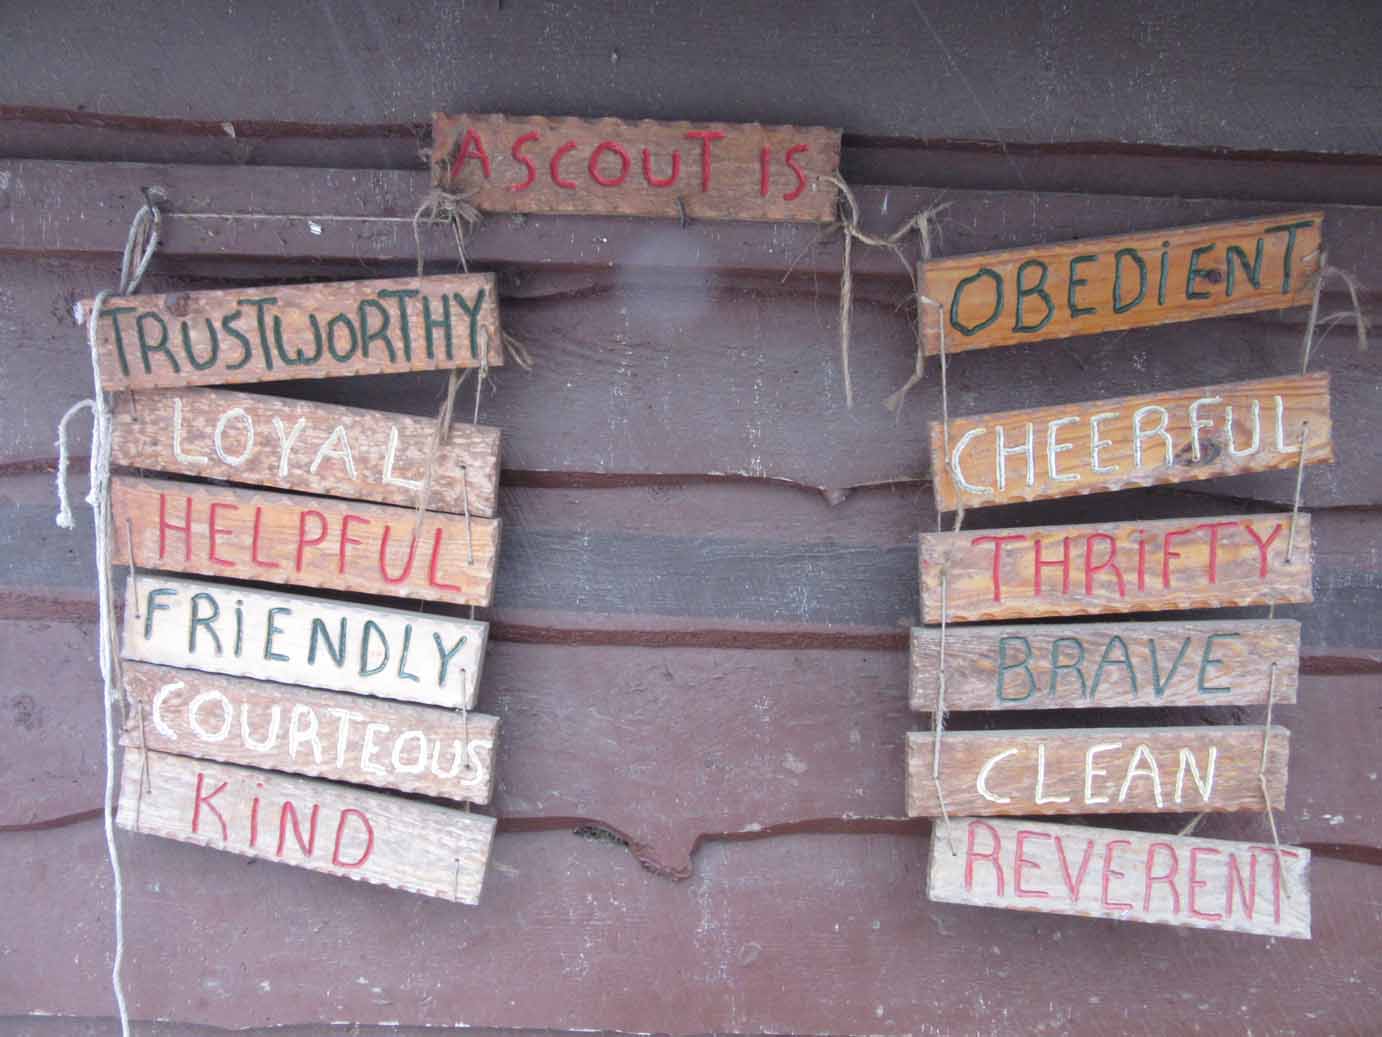 A SCOUT IS
TRUSTWORTHY
LOYAL
HELPFUL
FRiENDLY
COURTEOUS
KiND
OBEDiENT
CHEERFUL
THRiFTY
BRAVE
CLEAN
REVERENT